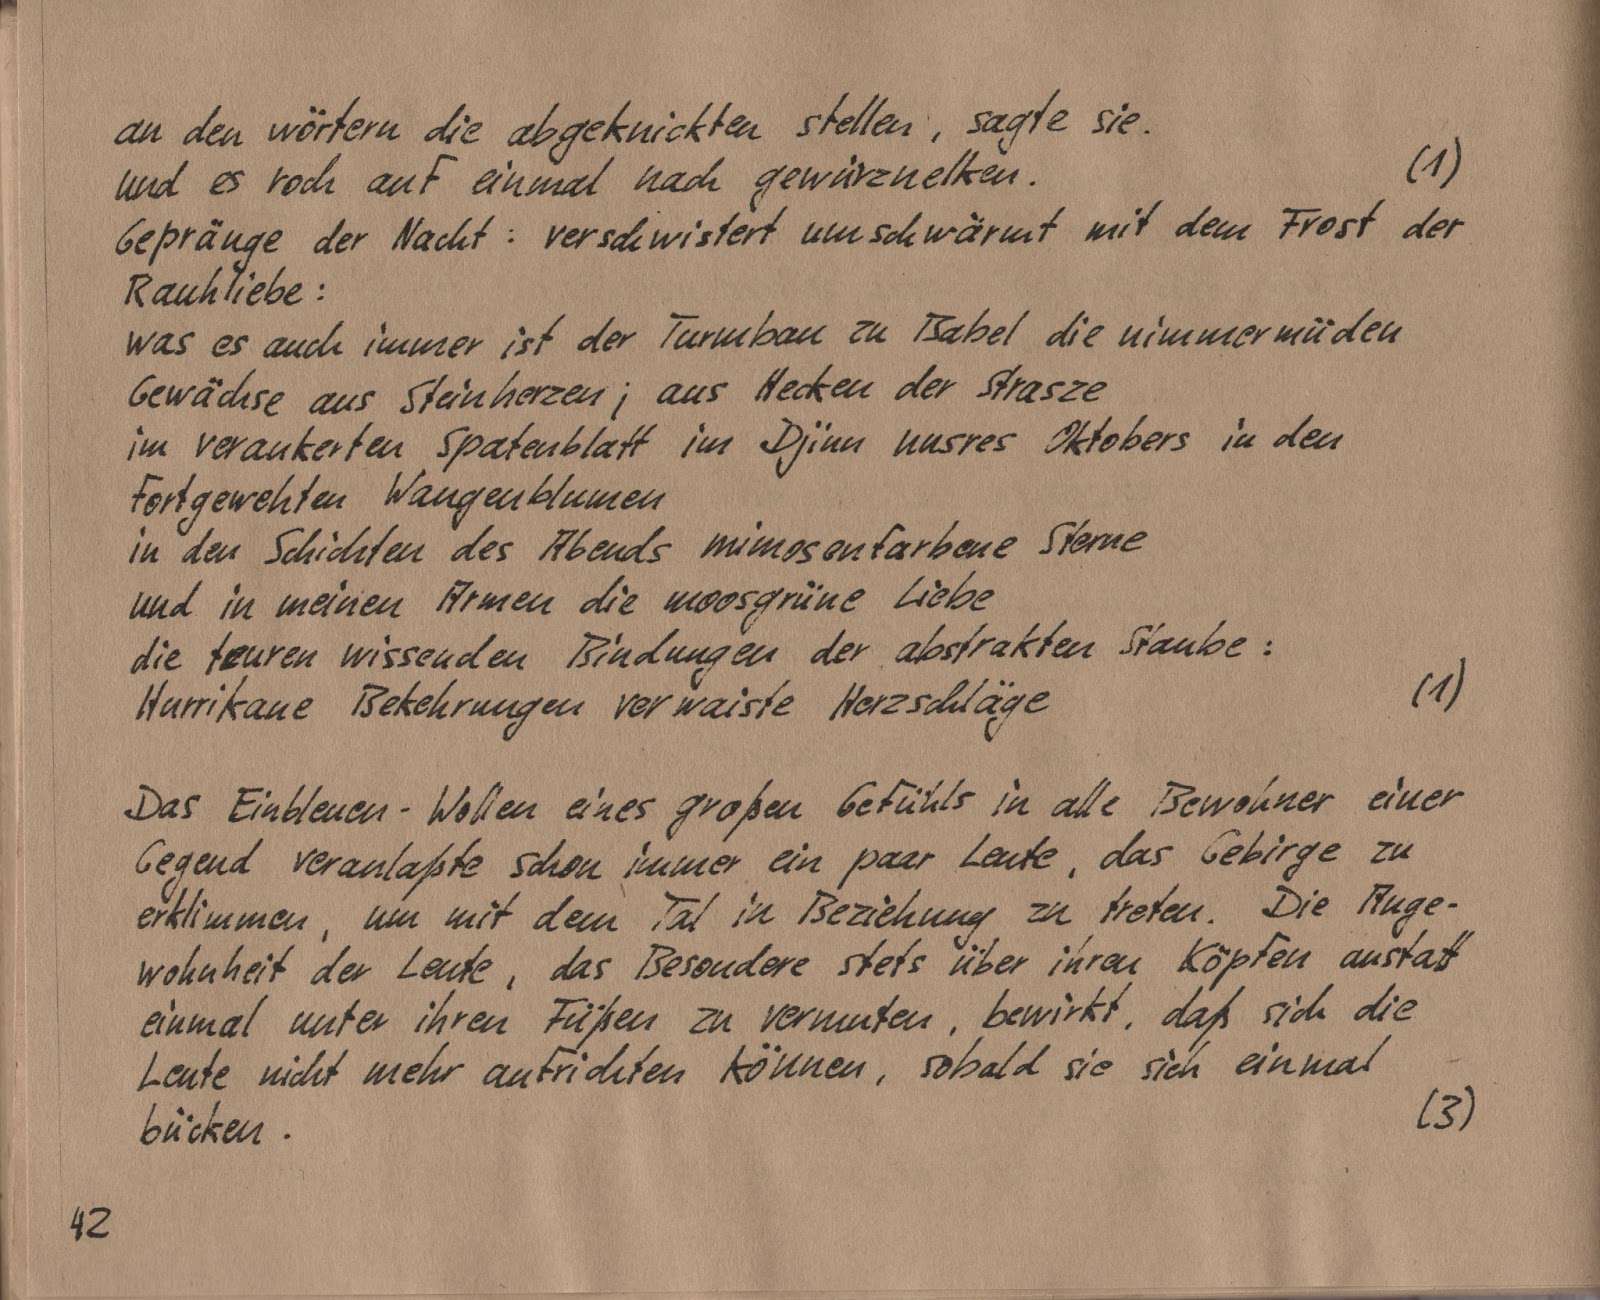 an den wörtern die abgeknickten stellen, sagte sie.
und es roch auf einmal nach gewürznelken. (1)
Gepränge der Nacht: verschwistert umschwärmt mit dem Frost der
Rauhliebe:
was es auch immer ist der Turmbau zu Babel die nimmermüden
Gewächse aus Steinherzen; aus Hecken der Strasze
im verankerten Spatenblatt im Djinn unsres Oktobers in den
fortgewehten Wangenblumen
in den Schichten des Abends mimosenfarbene Sterne
und in meinen Armen die moosgrüne Liebe
die teuren wissenden Bindungen der abstrakten Staube:
Hurrikane Bekehrungen verwaiste Herzschläge (1)
Das Einbleuen-Wollen eines großen Gefühls in alle Bewohner einer
Gegend veranlaßte schon immer ein paar Leute, das Gebirge zu
erklimmen, um mit dem Tal in Beziehung zu treten. Die Ange-
wohnheit der Leute, das Besondere stets über ihren Köpfen anstatt
einmal unter ihren Füßen zu vermuten, bewirkt, daß sich die
Leute nicht mehr aufrichten können, sobald sie sich einmal
bücken. (3)
42